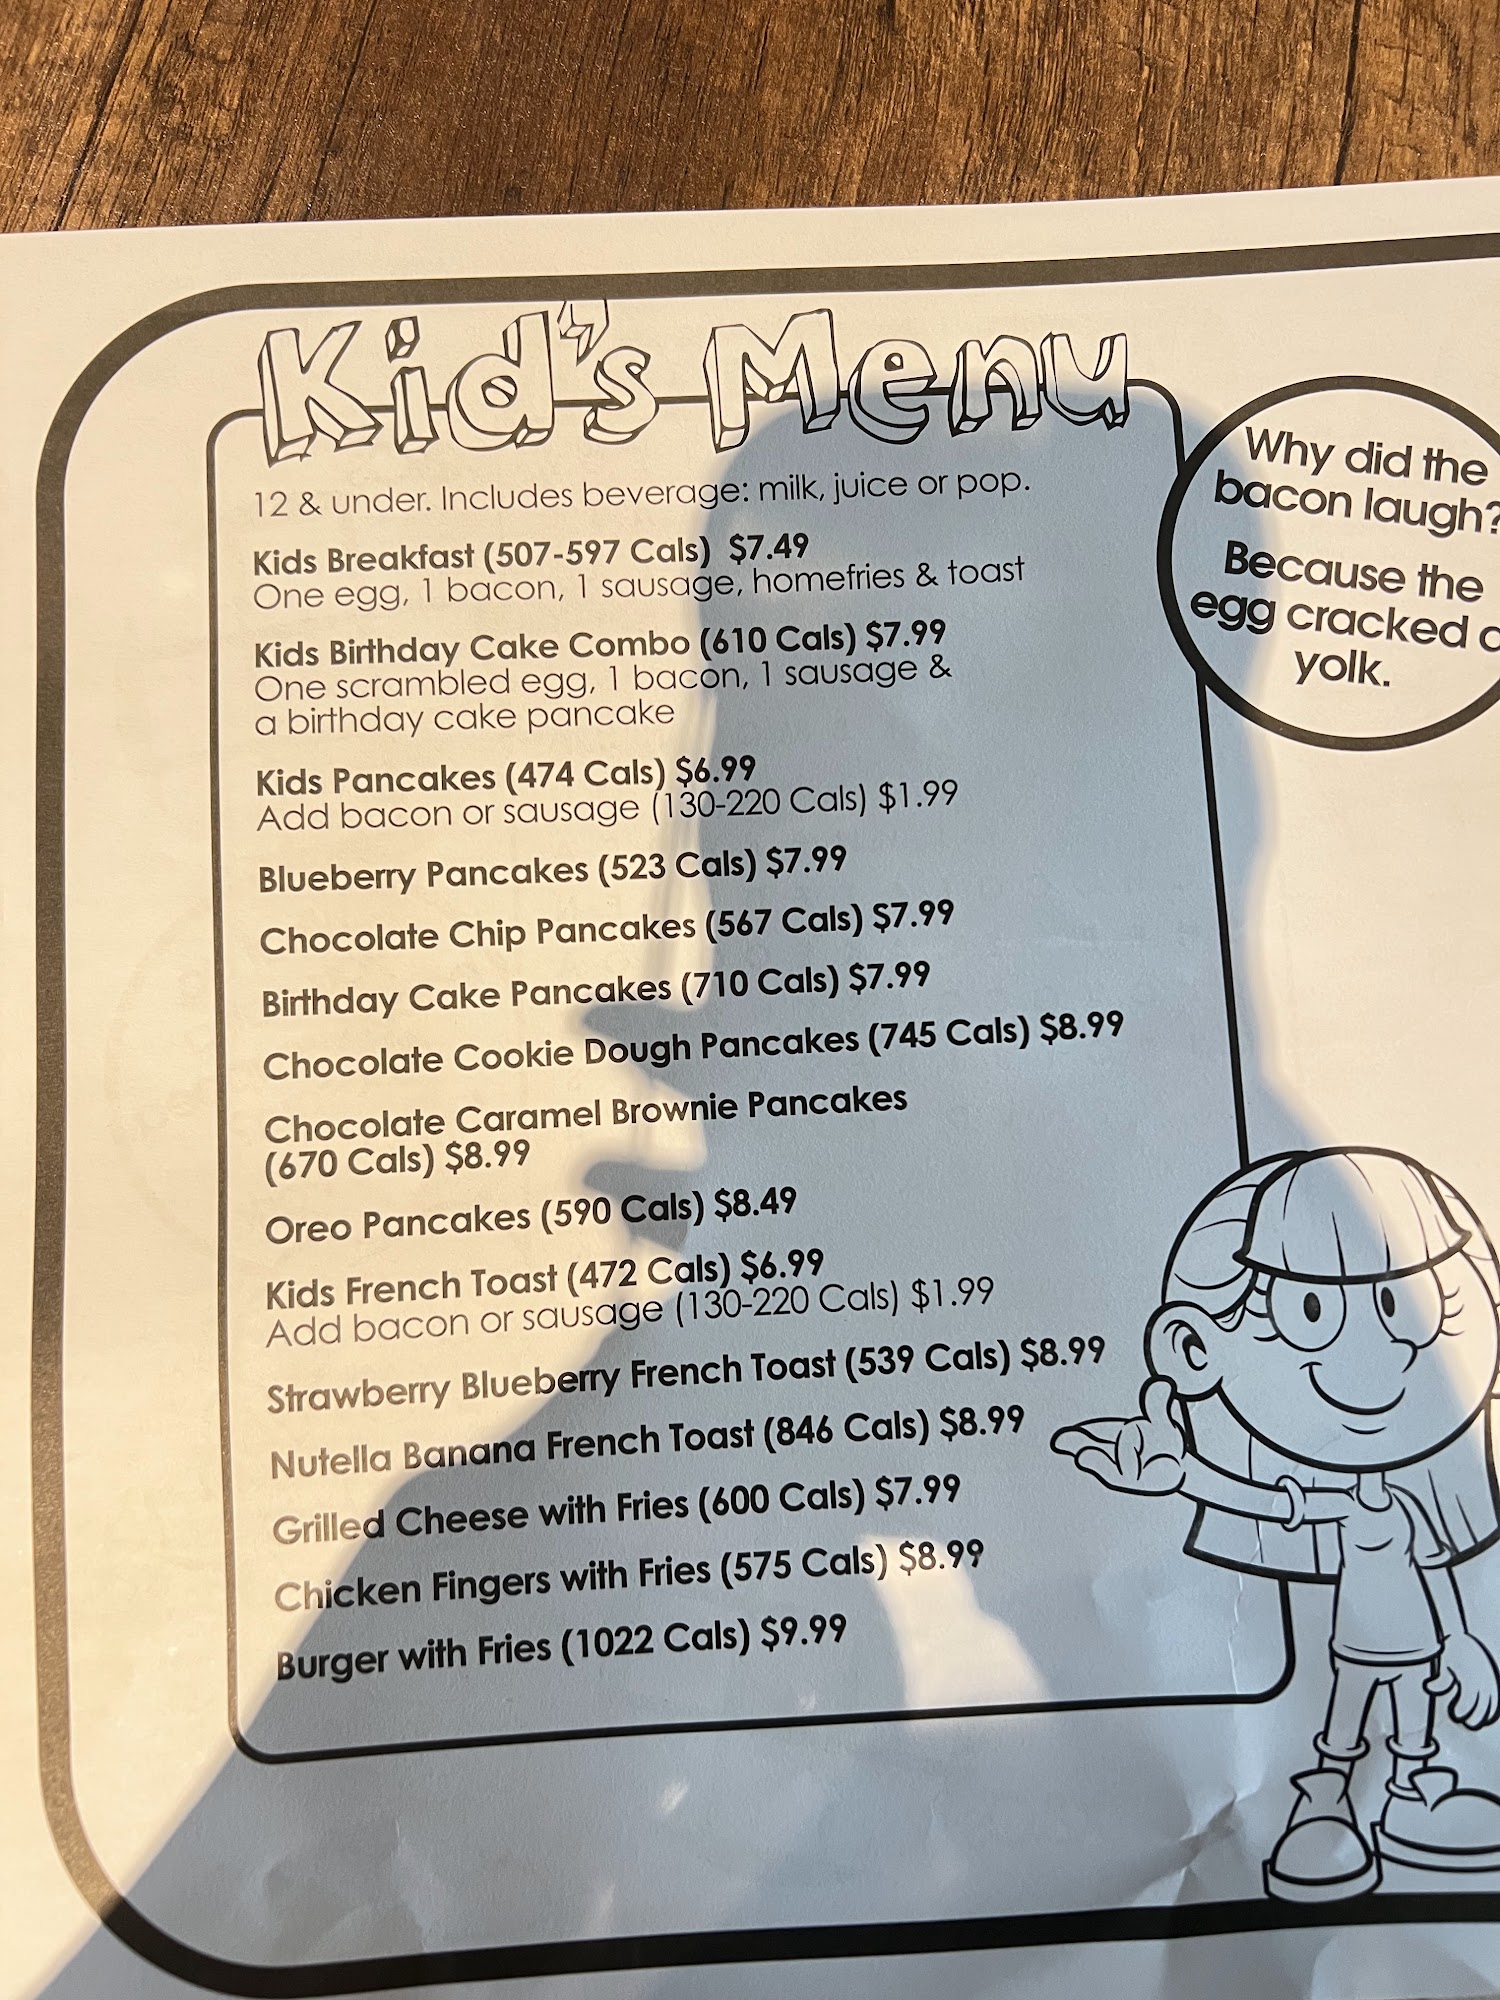 Kid's Menu
12 & under. Includes beverage: milk, juice or pop.
Kids Breakfast (507-597 Cals) $7.49
One egg, 1 bacon, 1 sausage, homefries & toast
Kids Birthday Cake Combo (610 Cals) $7.99
One scrambled egg, 1 bacon, 1 sausage &
a birthday cake pancake
Kids Pancakes (474 Cals) $6.99
Add bacon or sausage (130-220 Cals) $1.99
Blueberry Pancakes (523 Cals) $7.99
Chocolate Chip Pancakes (567 Cals) $7.99
Birthday Cake Pancakes (710 Cals) $7.99
Chocolate Cookie Dough Pancakes (745 Cals) $8.99
Chocolate Caramel Brownie Pancakes
(670 Cals) $8.99
Oreo Pancakes (590 Cals) $8.49
Kids French Toast (472 Cals) $6.99
Add bacon or sausage (130-220 Cals) $1.99
Strawberry Blueberry French Toast (539 Cals) $8.99
Nutella Banana French Toast (846 Cals) $8.99
Grilled Cheese with Fries (600 Cals) $7.99
Chicken Fingers with Fries (575 Cals) $8.99
Burger with Fries (1022 Cals) $9.99
Why did the
bacon laugh?
Because the
egg cracked
yolk.